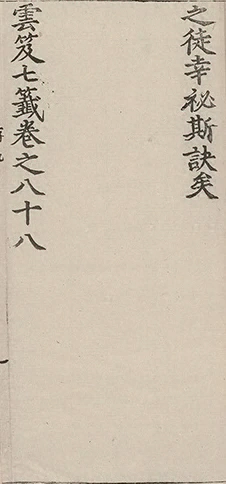 之徒幸祕斯訣矣
雲笈七籤卷之八十八